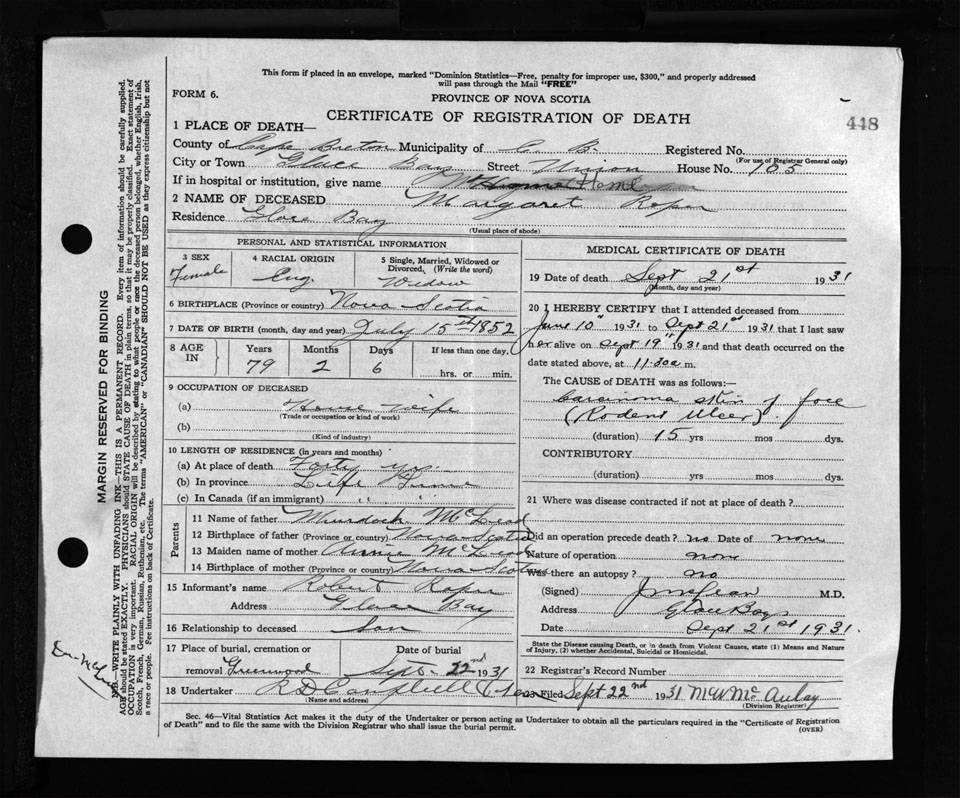 This form if placed in an envelope, marked "Dominion Statistics—Free, penalty for improper use, $300," and properly addressed
will pass through the Mail "FREE"
FORM 6.
PROVINCE OF NOVA SCOTIA
CERTIFICATE OF REGISTRATION OF DEATH
448
1 PLACE OF DEATH—
County of Cape Breton Municipality of C. B. Registered No.
(For use of Registrar General only)
City or Town Glace Bay Street Union House No. 105
If in hospital or institution, give name Home
2 NAME OF DECEASED Margaret Roper
Residence Glace Bay
(Usual place of abode)
PERSONAL AND STATISTICAL INFORMATION
3 SEX
Female
4 RACIAL ORIGIN
Eng.
5 Single, Married, Widowed or
Divorced. (Write the word)
Widow
6 BIRTHPLACE (Province or country) Nova Scotia
7 DATE OF BIRTH (month, day and year) July 15th 1852
8 AGE
IN
Years
79
Months
2
Days
6
If less than one day,
hrs. or min.
9 OCCUPATION OF DECEASED
(a) House wife
(Trade or occupation or kind of work)
(b)
(Kind of industry)
10 LENGTH OF RESIDENCE (in years and months)
(a) At place of death Forty yrs.
(b) In province Life Time
(c) In Canada (if an immigrant) " "
Parents
11 Name of father Murdock McLeod
12 Birthplace of father (Province or country) Nova Scotia
13 Maiden name of mother Annie McLeod
14 Birthplace of mother (Province or country) Nova Scotia
15 Informant's name Robert Roper
Address Glace Bay
16 Relationship to deceased Son
17 Place of burial, cremation or
removal Greenwood
Date of burial
Sept. 22nd 1931
18 Undertaker R D Campbell &
(Name and address)
MEDICAL CERTIFICATE OF DEATH
19 Date of death Sept 21st 1931
(Month, day and year)
20 I HEREBY CERTIFY that I attended deceased from
June 10" 1931 to Sept 21st 1931 that I last saw
her alive on Sept 19" 1931 and that death occurred on the
date stated above, at 11:30 a m.
The CAUSE OF DEATH was as follows:—
Carcinoma skin of face
(Rodent Ulcer).
(duration) 15 yrs mos dys.
CONTRIBUTORY
(duration) yrs mos dys.
21 Where was disease contracted if not at place of death?
Did an operation precede death? no Date of none
Nature of operation none
Was there an autopsy? no
(Signed) M.D.
Address Glace Bay
Date Sept 21st 1931.
State the Disease causing Death, or in death from Violent Causes, state (1) Means and Nature
of Injury, (2) whether Accidental, Suicidal or Homicidal.
22 Registrar's Record Number
Filed Sept 22nd 1931 McAulay
(Division Registrar)
Sec. 46—Vital Statistics Act makes it the duty of the Undertaker or person acting as Undertaker to obtain all the particulars required in the "Certificate of Registration
of Death" and to file the same with the Division Registrar who shall issue the burial permit.
(OVER)
MARGIN RESERVED FOR BINDING
N.B.—WRITE PLAINLY WITH UNFADING INK—THIS IS A PERMANENT RECORD. Every item of information should be carefully supplied.
AGE should be stated EXACTLY. PHYSICIANS should STATE CAUSE OF DEATH in plain terms, so that it may be properly classified. Exact statement of
OCCUPATION is very important. RACIAL ORIGIN will be described by stating to what people or race the deceased person belonged, whether English, Irish,
Scotch, French, German, Russian, Ruthenian, etc. The terms "AMERICAN" or "CANADIAN" SHOULD NOT BE USED as they express citizenship but not
a race or people. Fee instructions on back of Certificate.